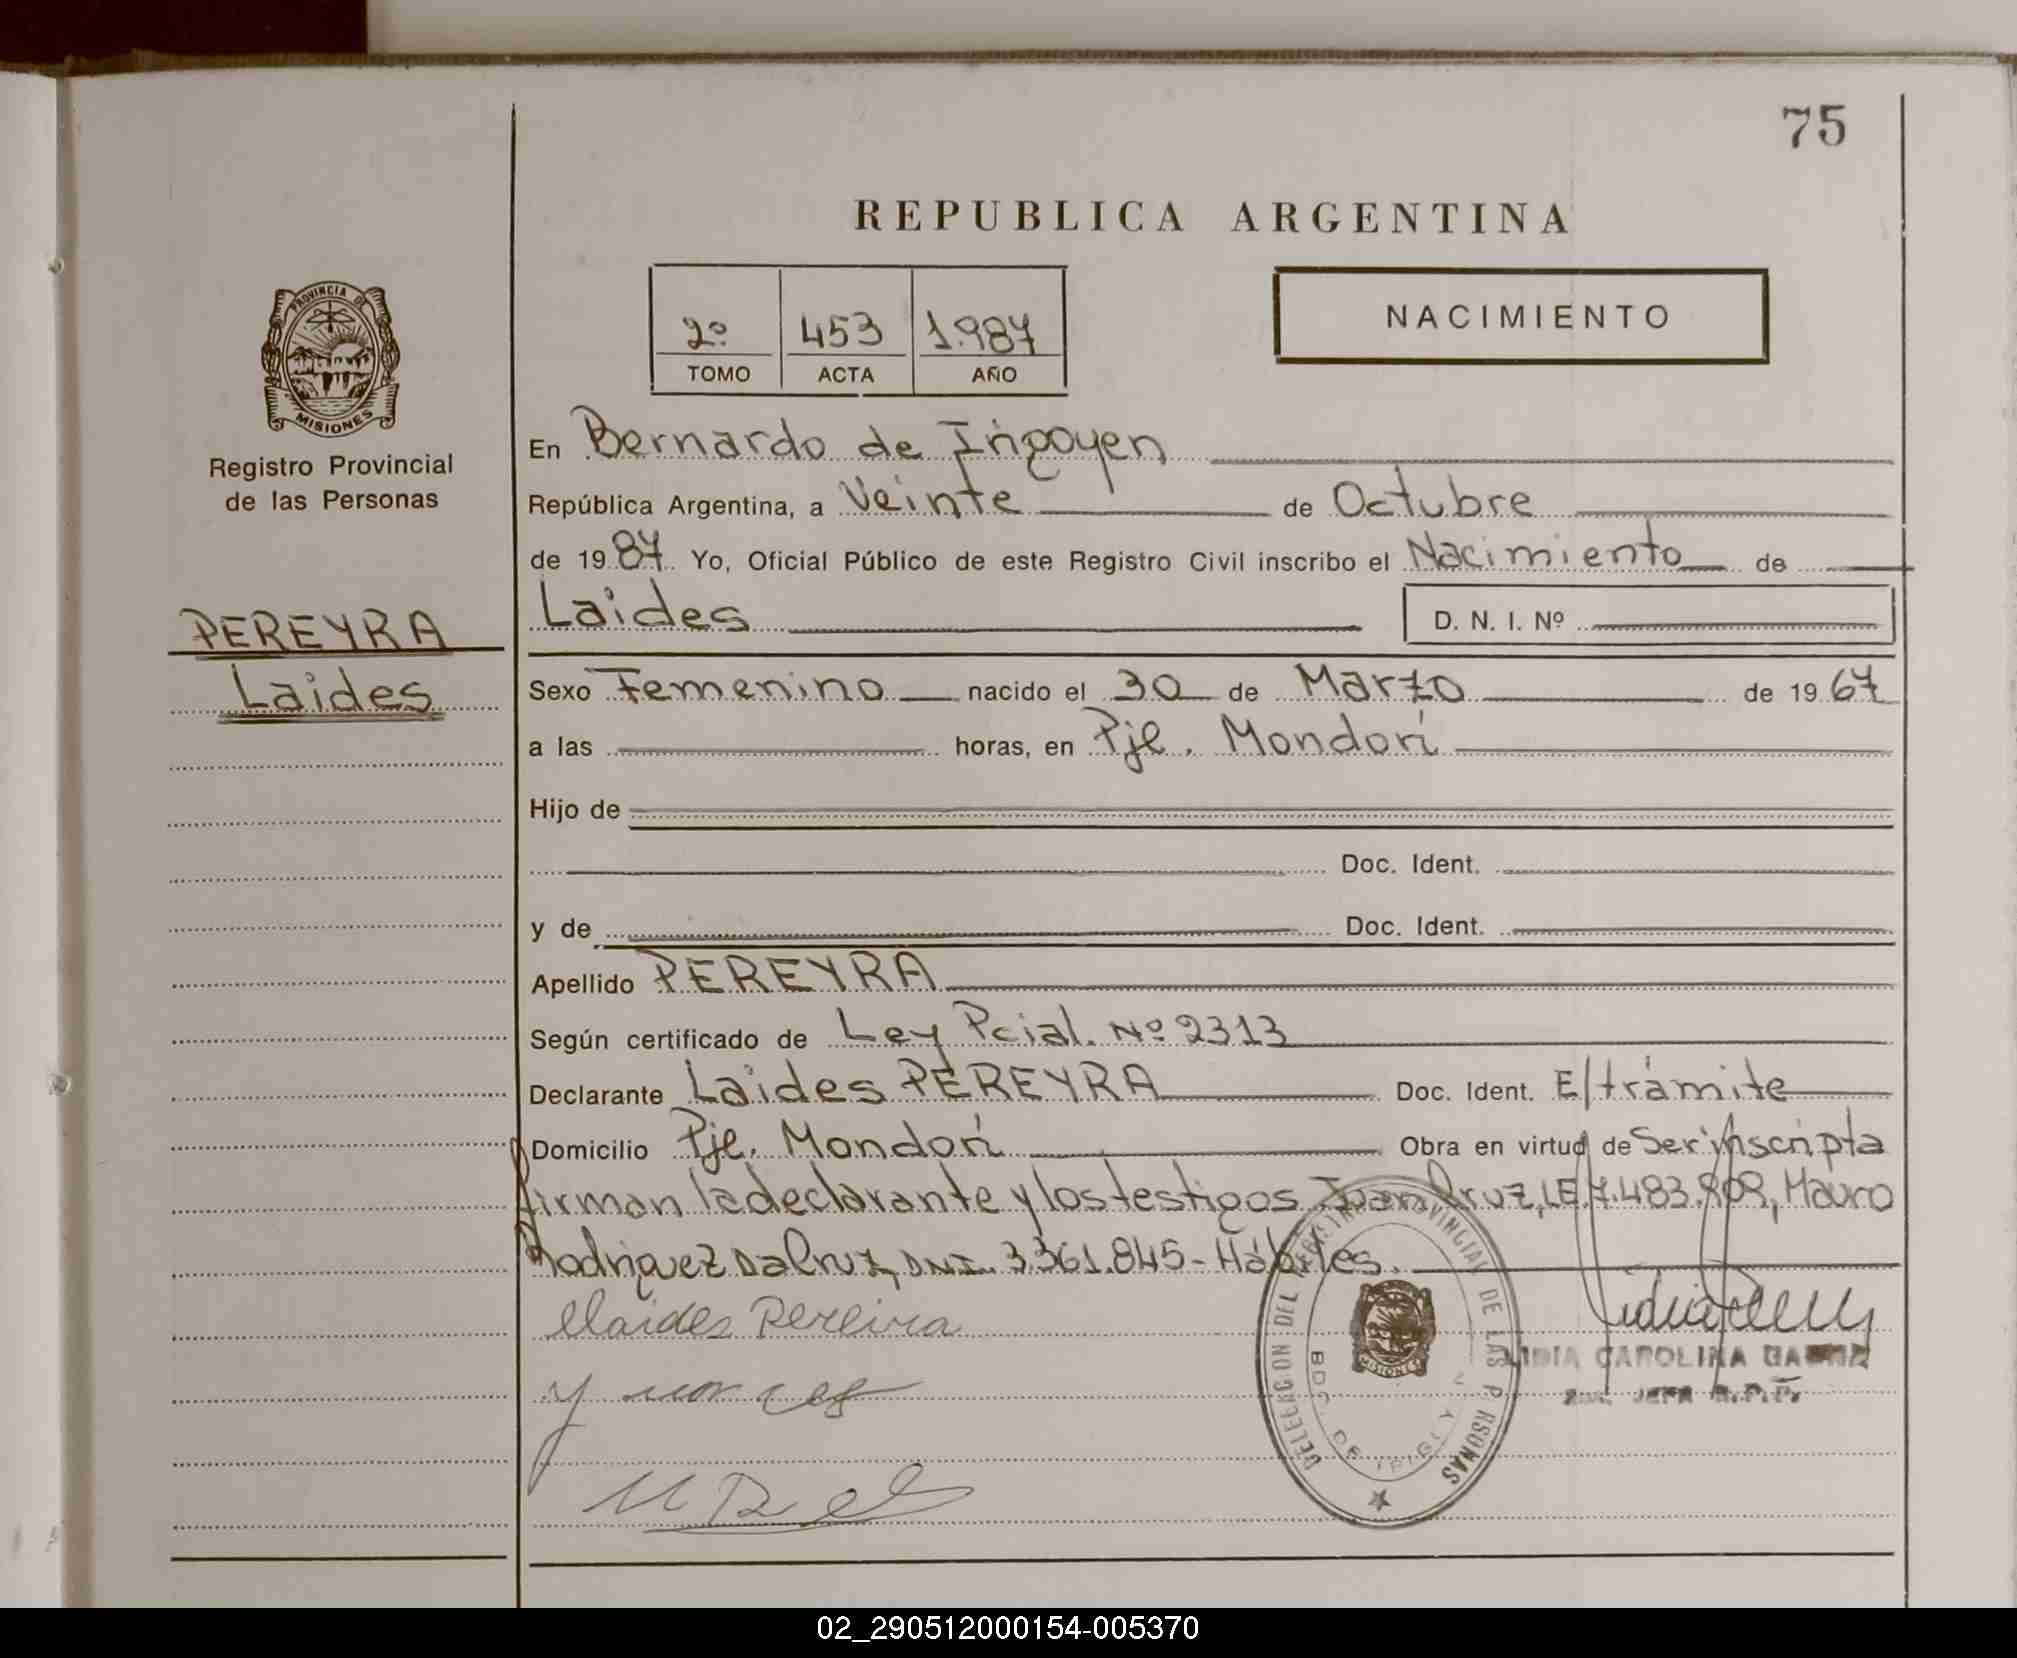 75
REPUBLICA ARGENTINA
PROVINCIA DE
MISIONES
Registro Provincial
de las Personas
2º 453 1.987
TOMO ACTA AÑO
NACIMIENTO
En Bernardo de Irigoyen
República Argentina, a Veinte de Octubre
de 1987. Yo, Oficial Público de este Registro Civil inscribo el Nacimiento de
PEREYRA
Laides
Laides D. N. I. Nº
Sexo Femenino nacido el 30 de Marzo de 1967
a las horas, en Pje. Mondorí
Hijo de
Doc. Ident.
y de Doc. Ident.
Apellido PEREYRA
Según certificado de Ley Pcial. Nº 2313
Declarante Laides PEREYRA Doc. Ident. E/trámite
Domicilio Pje. Mondorí Obra en virtud de Ser inscripta
firman la declarante y los testigos Cruz, LE. Mauro
Rodriguez DaCruz, DNI. 3361.845- Hábiles.
Pereira
DELEGACION DEL REGISTRO PROVINCIAL DE LAS P RSONAS
MISIONES
LIDIA CAROLINA
JEFA R.P.P.
02_290512000154-005370